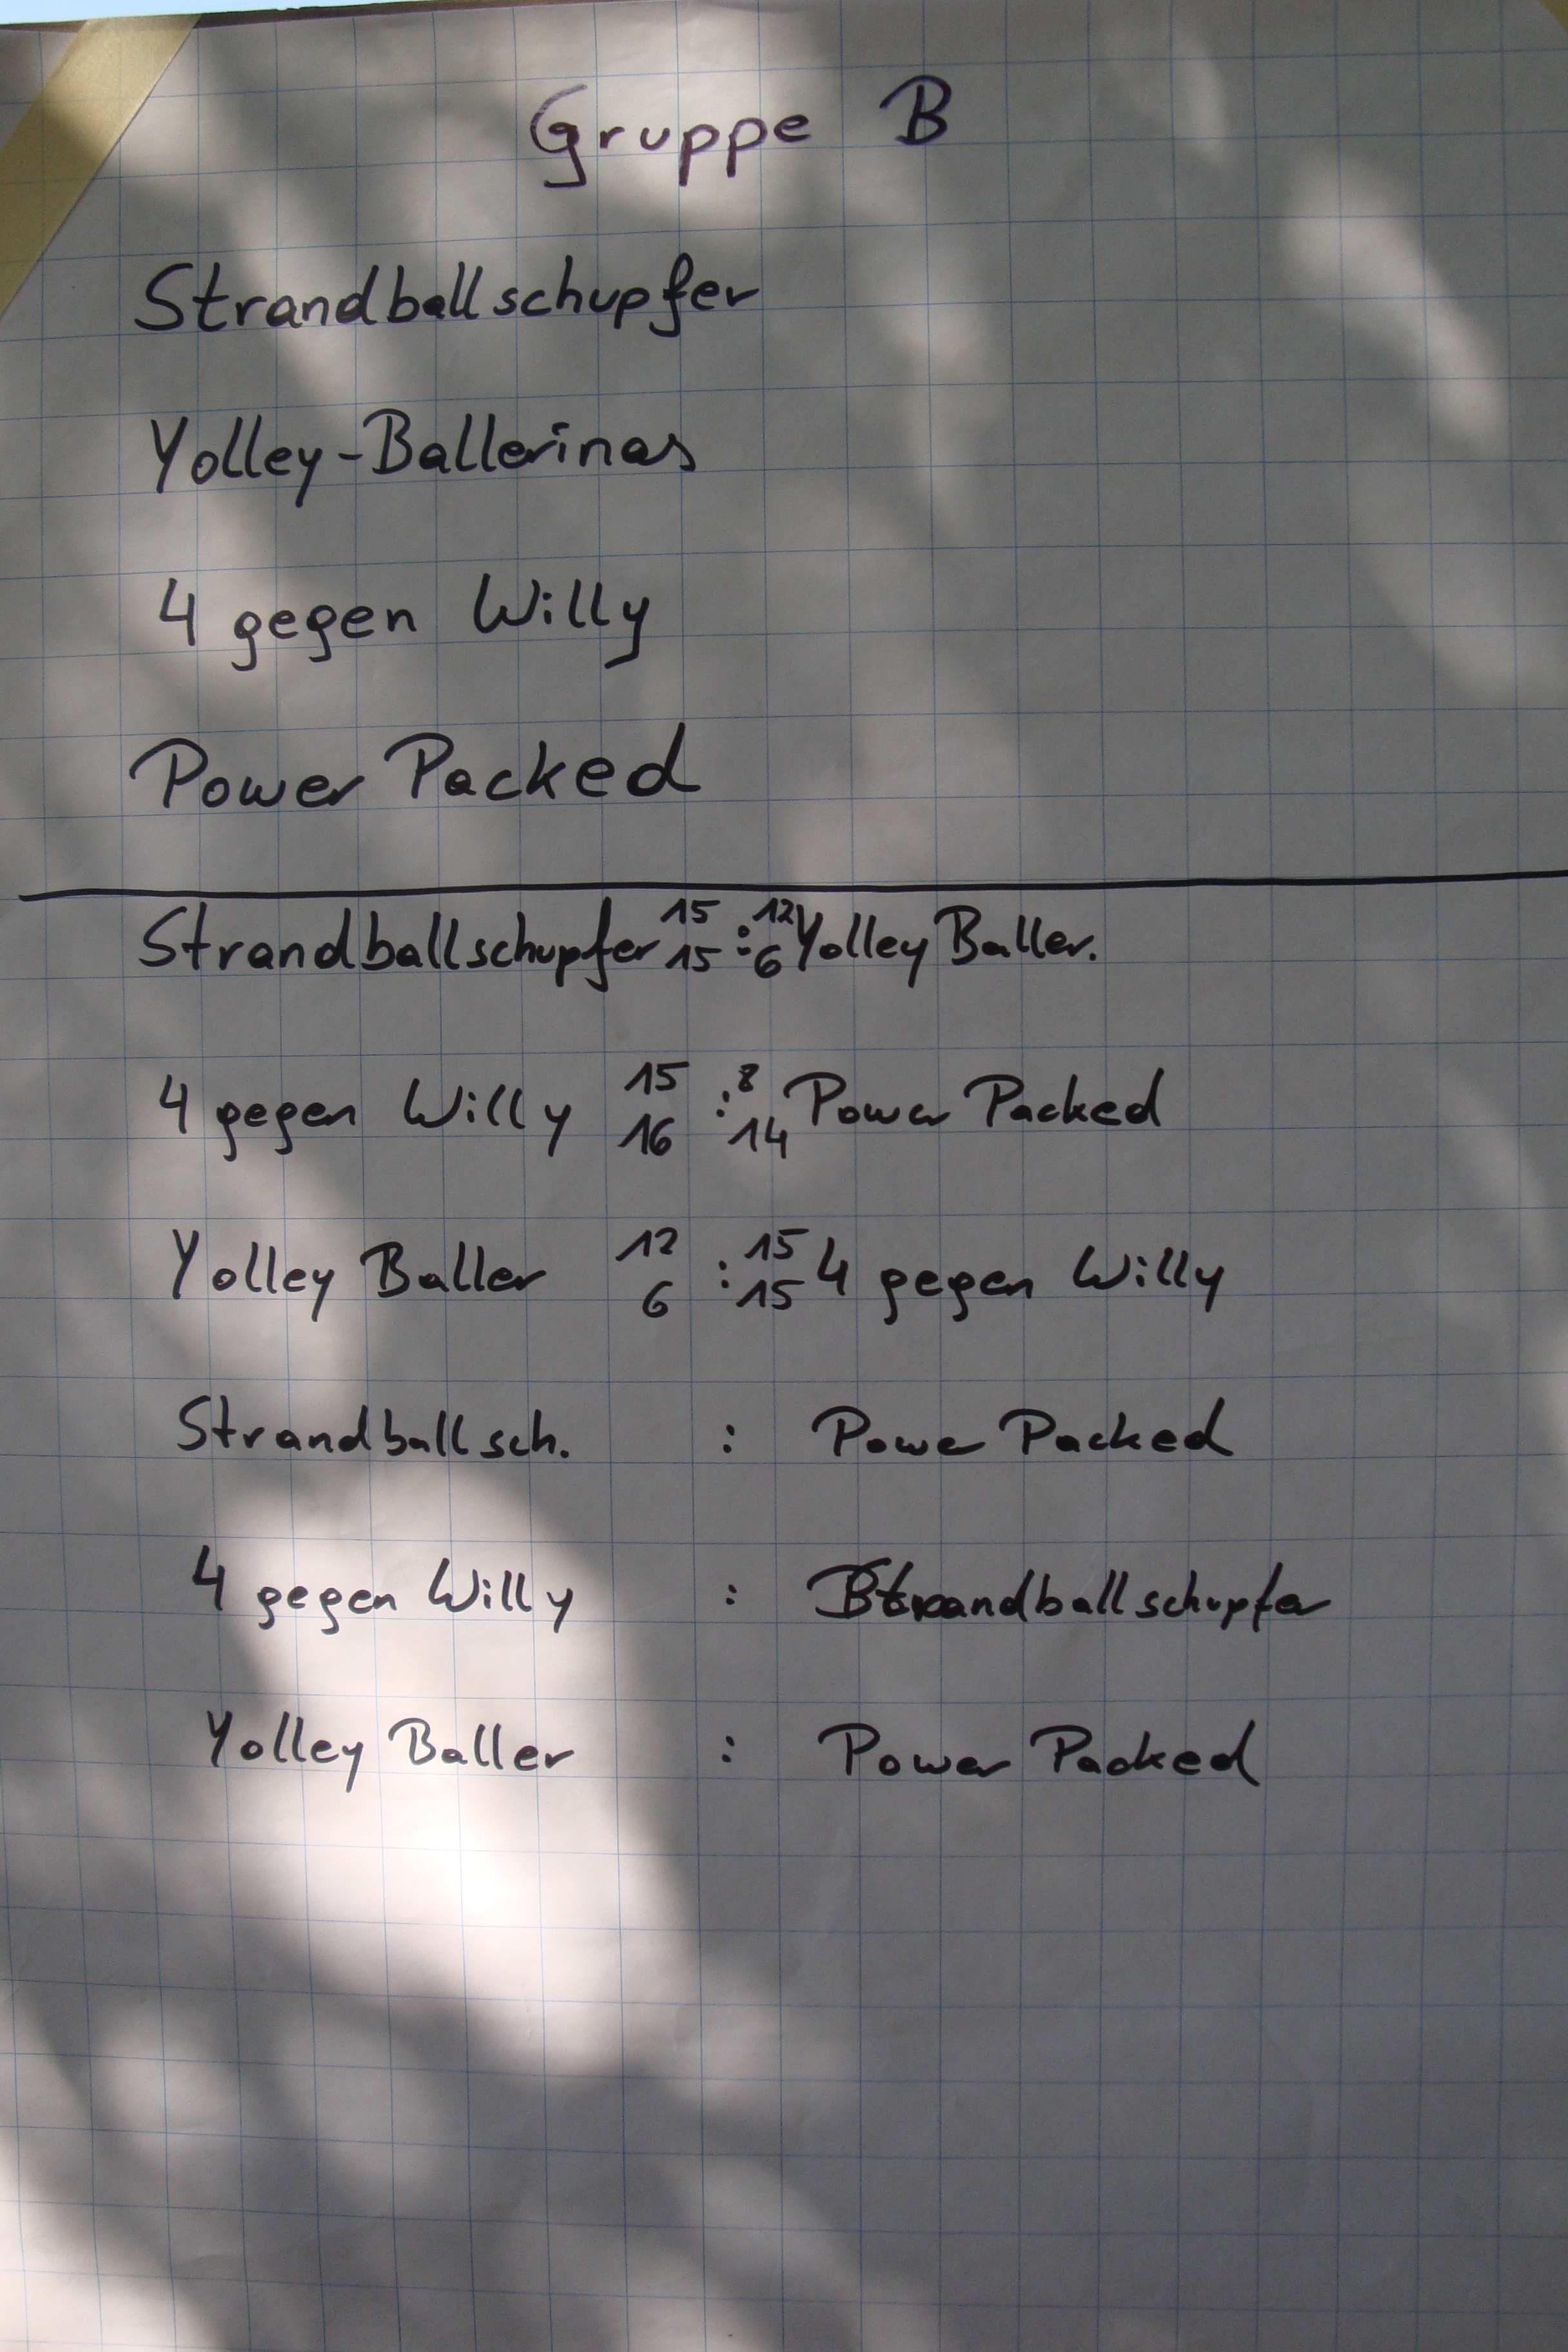 Gruppe B
Strandballschupfer
Yolley-Ballerinas
4 gegen Willy
Power Packed
Strandballschupfer 15 : 12 Yolley Baller.
15 : 6
4 gegen Willy 15 : 8 Power Packed
16 14
Yolley Baller 12 : 15 4 gegen Willy
6 15
Strandballsch. : Power Packed
4 gegen Willy : Strandballschupfer
Yolley Baller : Power Packed